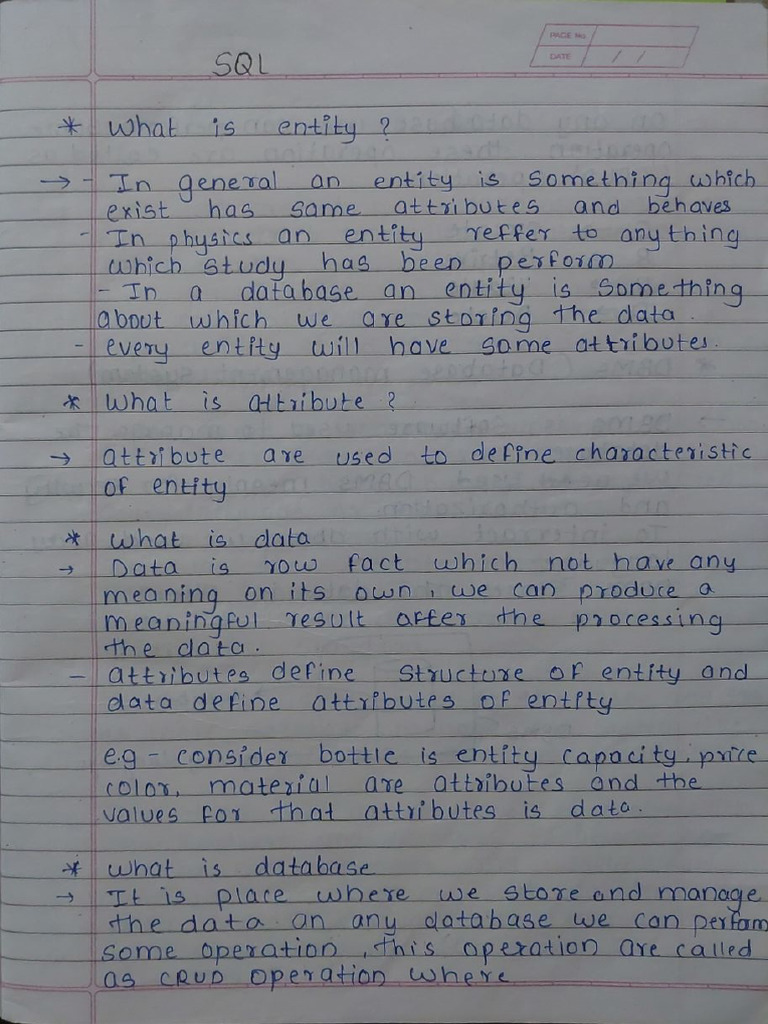 PAGE No.
DATE / /
SQL
* What is entity ?
→ - In general an entity is something which
exist has some attributes and behaves
- In physics an entity reffer to anything
which study has been perform
- In a database an entity is something
about which we are storing the data.
- every entity will have some attributes.
* What is attribute ?
→ attribute are used to define characteristic
of entity
* what is data
→ Data is row fact which not have any
meaning on its own, we can produce a
meaningful result after the processing
the data.
- attributes define structure of entity and
data define attributes of entity
e.g - consider bottle is entity capacity, price
color, material are attributes and the
values for that attributes is data.
* what is database
→ It is place where we store and manage
the data. an any database we can perform
some operation, this operation are called
as CRUD operation where